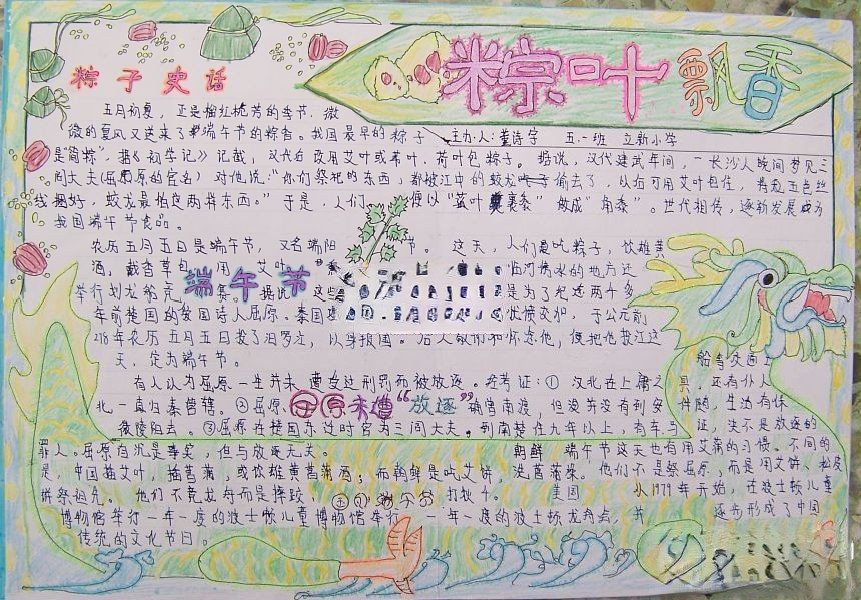 粽叶飘香
粽子史话
五月初夏，正是榴红桃芳的季节，微
微的夏风又送来了端午节的粽香。我国最早的粽子
主办人：董诗宇 五.一班 立新小学
是"筒粽"。据《初学记》记载，汉代已改用艾叶或苇叶、荷叶包粽子。据说，汉代建武年间，一长沙人晚间梦见三
闾大夫(屈原的官名)对他说："你们祭祀的东西，都被江中的蛟龙偷去了，以后可用艾叶包住，
捆好，蛟龙最怕这两样东西。"于是，人们 便以"菰叶裹黍"做成"角黍"。世代相传，逐渐发展成为
我国端午节食品。
农历五月五日是端午节，又名端阳 节。这天，人们是吃粽子，饮雄黄
酒，戴香草包，用艾叶 临河傍水的地方还
端午节
举行划龙船竞赛。据说，这些 是为了纪念两千多
年前楚国的爱国诗人屈原。 于公元前
278年农历五月五日投了汨罗江，以身报国。后人敬仰和怀念他，便把他投江这
天，定为端午节。
有人认为屈原一生并未 过刑罚而被放逐。经考证：①汉北在上庸之
北一直归秦管辖。②屈原 确曾南渡，但没并没有到安
屈原未遭"放逐"
③屈原在楚国东迁时官为三闾大夫。到南楚住九年以上，有车马
船等交通工
具，还有仆人
伴随，生活有保
证，决不是放逐的
罪人。屈原自沉是事实，但与放逐无关。
朝鲜 端午节这天也有用艾蒲的习惯。不同的
是，中国插艾叶，插菖蒲，或饮雄黄菖蒲酒；而朝鲜是吃艾饼，洗菖蒲澡。他们不是祭屈原，而是用艾饼、
拼祭祖先。他们不竞龙舟而是摔跤、打秋千。 美国 从1979年开始，在波士顿儿童
博物馆举行一年一度的波士顿儿童博物馆举行 一年一度的波士顿龙舟会，并 逐步形成了中国
传统的文化节日。